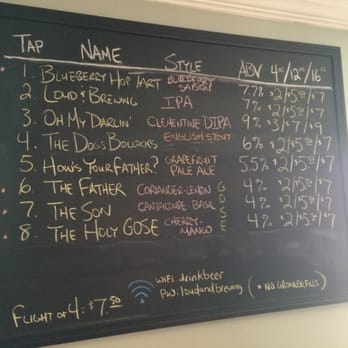 TAP NAME STYLE ABV 4oz/12oz/16oz
1. BLUEBERRY HOP TART BLUEBERRY SAISON 7.7% $2/$5.50/$7
2. LOUD & BREWING IPA 7% $2/$5.50/$7
3. OH MY DARLIN' CLEMENTINE DIPA 9% $3/$7/$9
4. THE DOGS BOLLOCKS ENGLISH STOUT 6% $2/$5.50/$7
5. HOW'S YOUR FATHER? GRAPEFRUIT PALE ALE 5.5% $2/$5.50/$7
6. THE FATHER CORIANDER-LEMON 4% $2/$5.50/$7
7. THE SON CANTALOUPE-BASIL 4% $2/$5.50/$7
8. THE HOLY GOSE CHERRY-MANGO 4% $2/$5.50/$7
GOSE
FLIGHT OF 4: $7.50
WIFI: drinkbeer
PW: loudandbrewing
(* NO GROWLER FILLS)